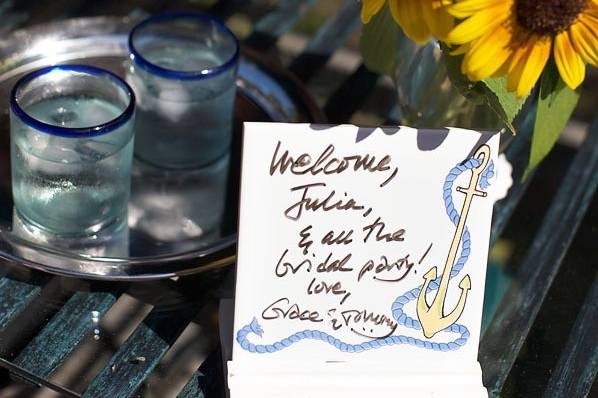 Welcome,
Julia,
& all the
bridal party!
love,
Grace & Tommy